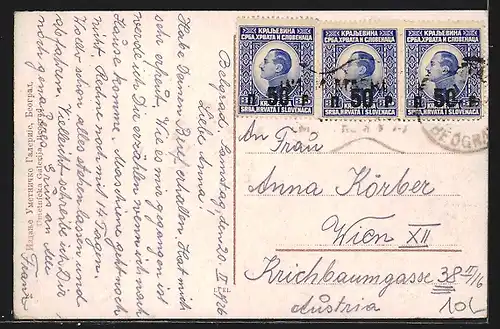 Belgrad, Samstag, den 20. II 1926
Liebe Anna!
Habe Deinen Brief erhalten. Hat mich
sehr erfreut. Wie es mir gegangen ist
werde ich Dir erzählen wenn ich nach
Hause komme. Maschine geht noch
nicht. Rechne noch mit 14 Tagen.
schon alles stehen lassen und
abfahren. Vielleicht schreibe ich Dir
noch genau.
Gruss an
Franz
Издање Уметничке Галерије, Београд.
КРАЉЕВИНА
СРБА, ХРВАТА И СЛОВЕНАЦА
50 П
KRALJEVINA
SRBA, HRVATA I SLOVENACA
КРАЉЕВИНА
СРБА, ХРВАТА И СЛОВЕНАЦА
50 P
KRALJEVINA
SRBA, HRVATA I SLOVENACA
КРАЉЕВИНА
СРБА, ХРВАТА И СЛОВЕНАЦА
50 P
KRALJEVINA
SRBA, HRVATA I SLOVENACA
BEOGRAD
An Frau
Anna Körber
Wien XII
Krichbaumgasse 38 II/16
Austria